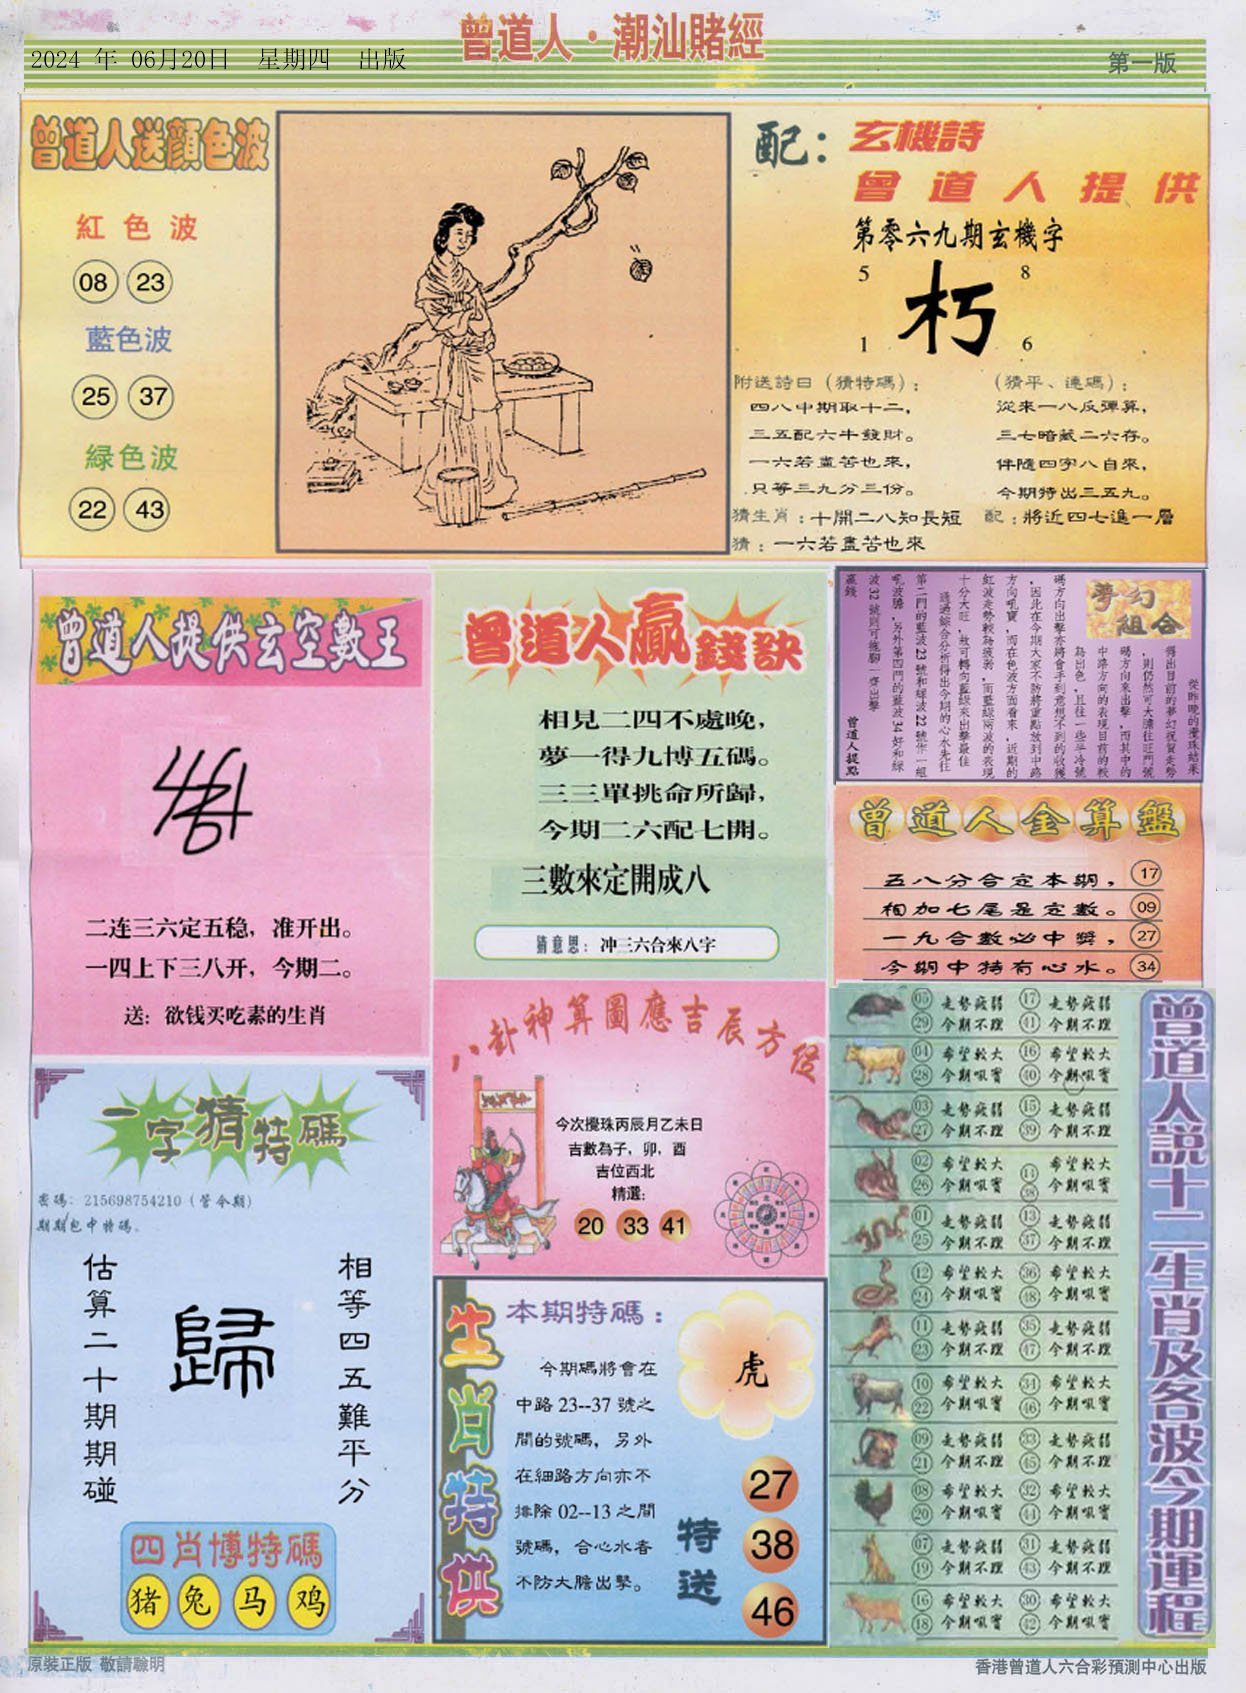 曾道人·潮汕賭經
2024 年 06月20日 星期四 出版
第一版
曾道人送顏色波
紅色波
08 23
藍色波
25 37
綠色波
22 43
配：玄機詩
曾道人提供
第零六九期玄機字
5 8
朽
1 6
附送詩曰（猜特碼）：
四八中期取十二，
三五配六牛發財。
一六若盡苦也來，
只等三九分三份。
（猜平、連碼）：
從來一八反彈算，
三七暗藏二六存。
伴隨四字八自來，
今期特出三五九。
猜生肖：十開二八知長短 配：將近四七進一層
猜：一六若盡苦也來
曾道人提供玄空數王
二连三六定五稳，准开出。
一四上下三八开，今期二。
送：欲钱买吃素的生肖
曾道人贏錢訣
相見二四不處晚，
夢一得九博五碼。
三三單挑命所歸，
今期二六配七開。
三數來定開成八
猜意思：冲三六合來八字
夢幻組合
從昨晚的攪珠結果
得出目前的夢幻祝賀走勢
，則仍然可大膽往旺門號
碼方向來出擊，而其中的
中路方向的表現目前的較
為出色，且往一些半冷號
碼方向出擊亦將會手到意想不到的收獲
，因此在今期大家不防將重點放到中路
方向吼寶，而在色波方面看來，近期的
紅波走勢較為疲弱，而藍綠兩波的表現
十分大旺，故可轉向藍綠來出擊最佳
通過綜合分析得出今期的心水先往
第二門的藍波23號和綠波22號作一組
吼波膽，另外第四門的藍波34好和綠
波32號則可拖腳一齊出擊
贏錢
曾道人提點
曾道人金算盤
五八分合定本期， 17
相加七尾是定數。 09
一九合數必中獎， 27
今期中特有心水。 34
八卦神算圖應吉辰方位
今次攪珠丙辰月乙未日
吉數為子，卯，酉
吉位西北
精選：
20 33 41
一字猜特碼
密碼：215698754210（管今期）
期期包中特碼。
估算二十期期碰
歸
相等四五難平分
四肖博特碼
猪 兔 马 鸡
生肖特供
本期特碼：
今期碼將會在
中路 23--37 號之
間的號碼，另外
在細路方向亦不
排除 02--13 之間
號碼，合心水者
不防大膽出擊。
虎
特送
27
38
46
曾道人説十二生肖及各波今期運程
05 走勢疲弱 17 走勢疲弱
29 今期不理 41 今期不理
04 希望較大 16 希望較大
28 今期吼寶 40 今期吼寶
03 走勢疲弱 15 走勢疲弱
27 今期不理 39 今期不理
02 希望較大 14 希望較大
26 今期吼寶 38 今期吼寶
01 走勢疲弱 13 走勢疲弱
25 今期不理 37 今期不理
12 希望較大 36 希望較大
24 今期吼寶 48 今期吼寶
11 走勢疲弱 35 走勢疲弱
23 今期不理 47 今期不理
10 希望較大 34 希望較大
22 今期吼寶 46 今期吼寶
09 走勢疲弱 33 走勢疲弱
21 今期不理 45 今期不理
08 希望較大 32 希望較大
20 今期吼寶 44 今期吼寶
07 走勢疲弱 31 走勢疲弱
19 今期不理 43 今期不理
16 希望較大 30 希望較大
18 今期吼寶 42 今期吼寶
原裝正版 敬請聰明
香港曾道人六合彩預測中心出版